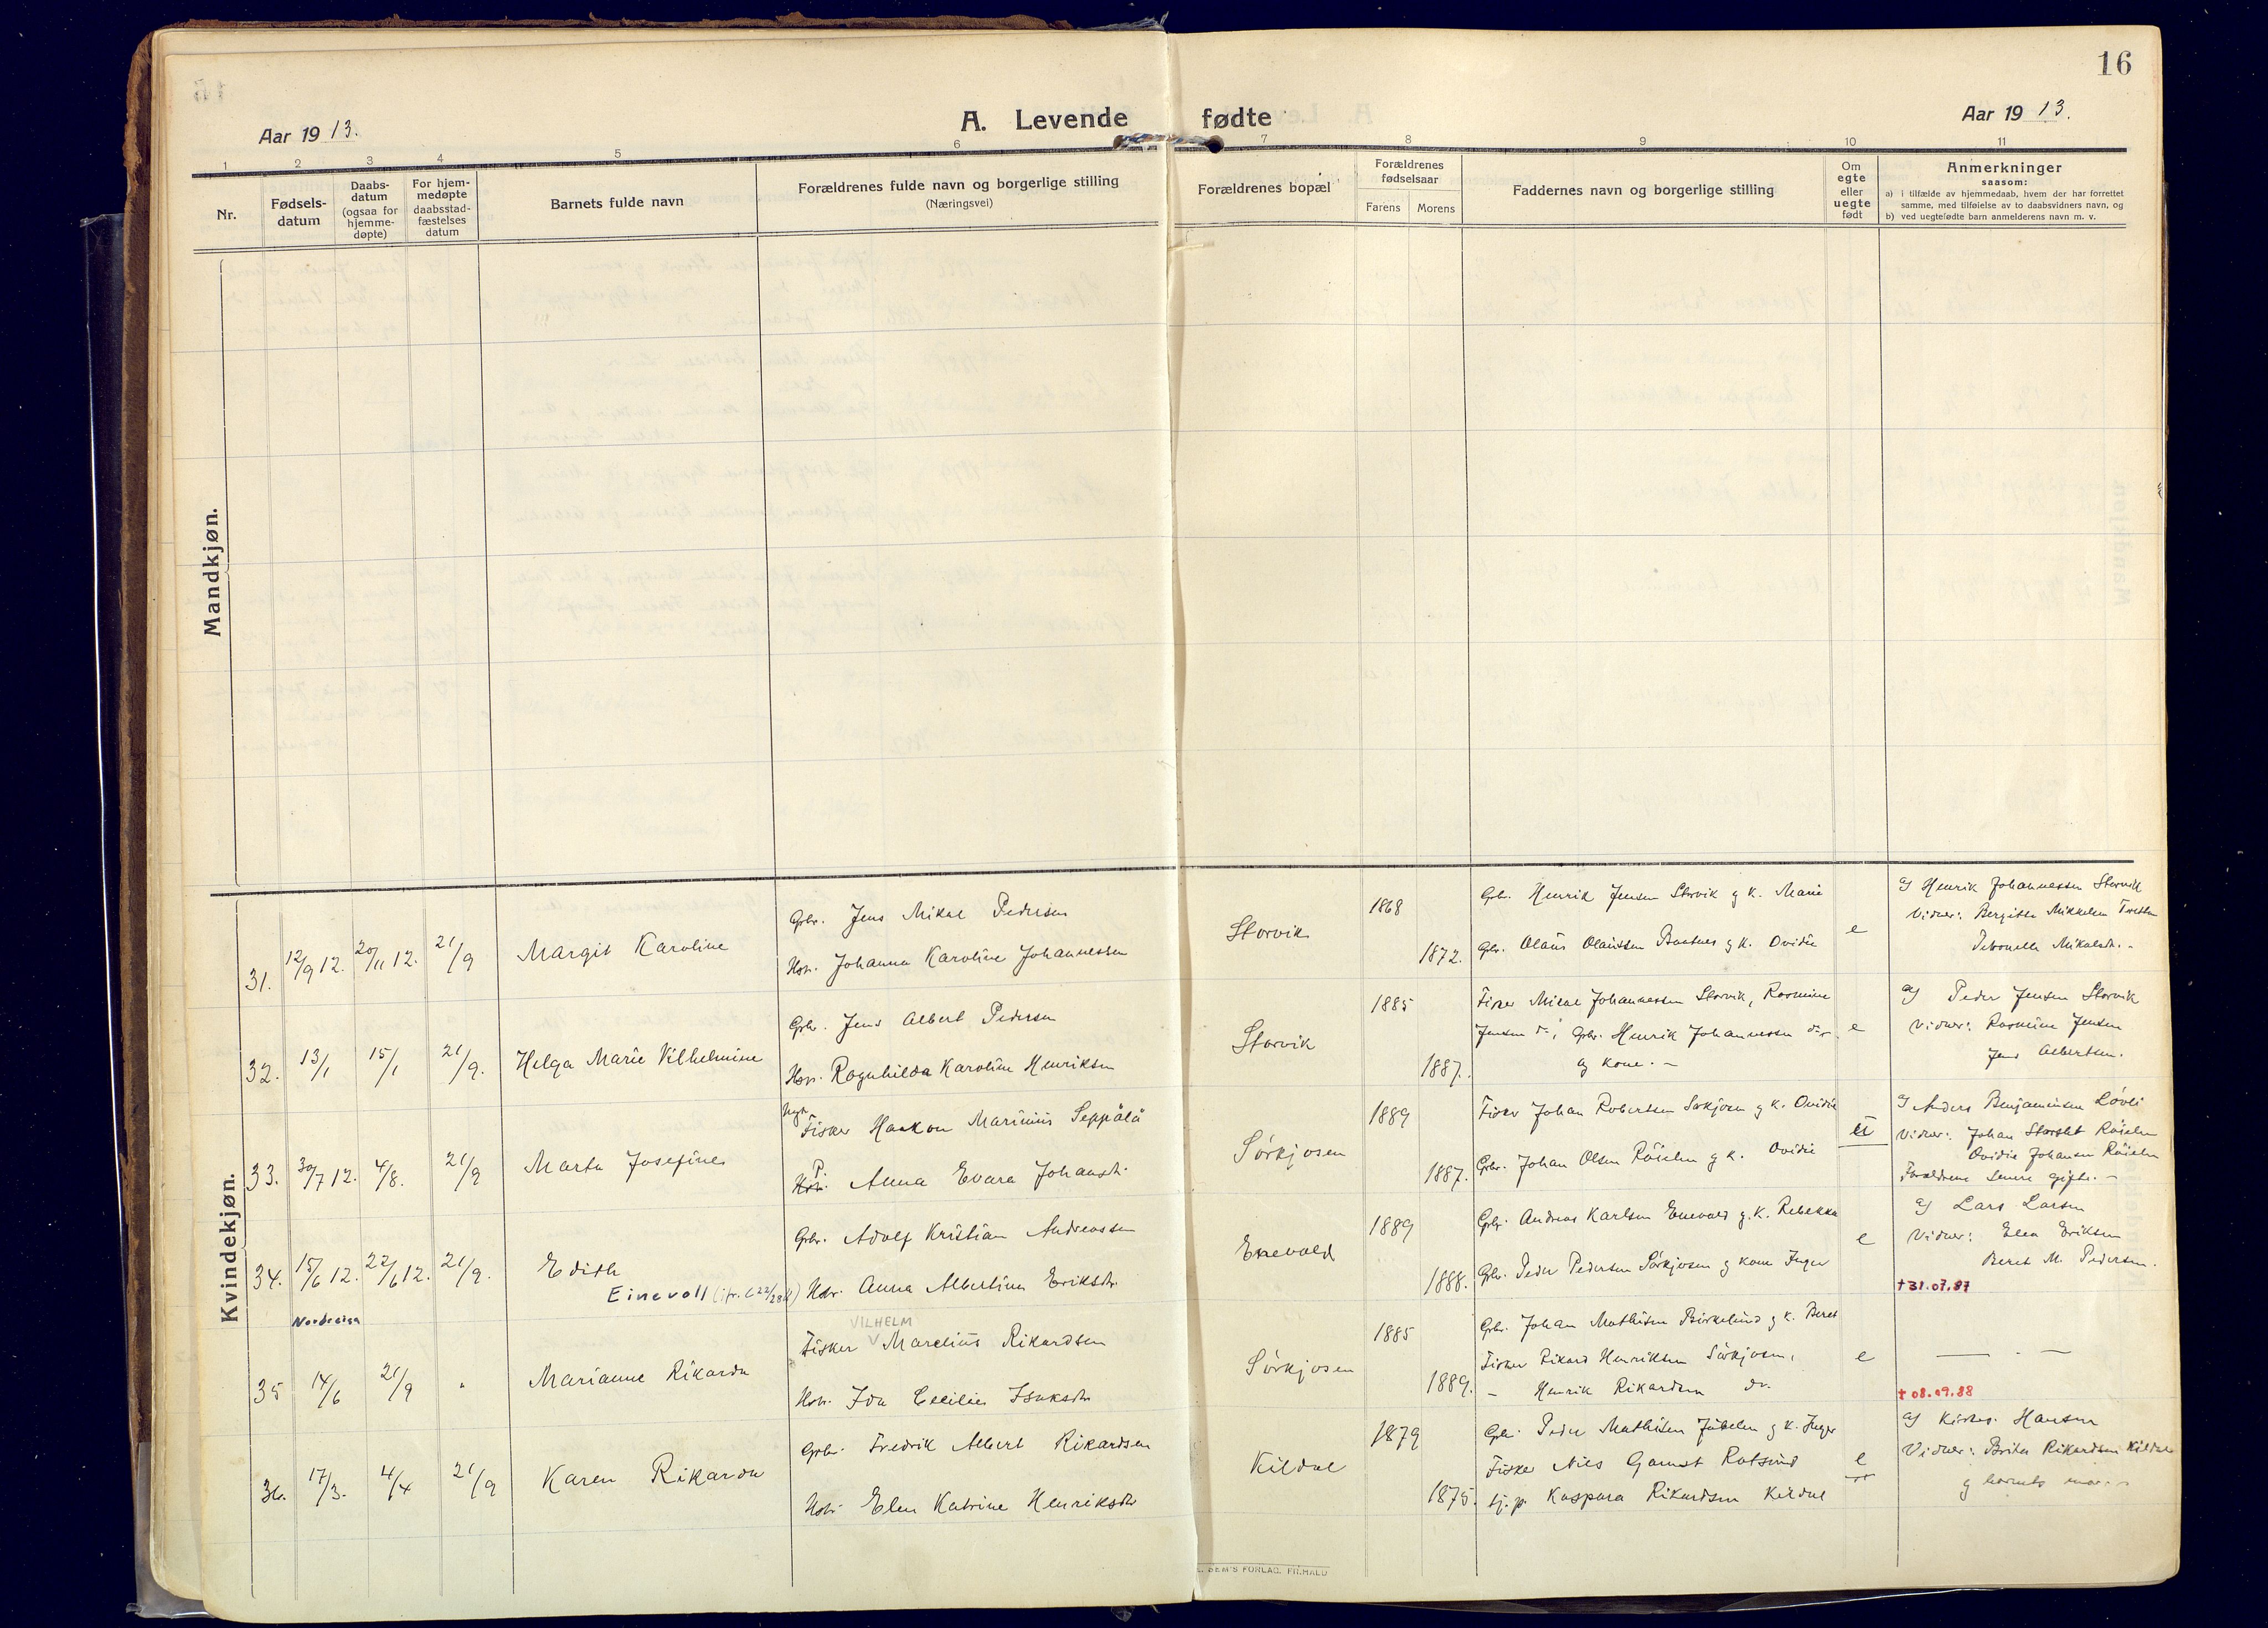 16
Aar 1913.
A. Levende fødte
Aar 1913.
1 2 3 4 5 6 7 8 9 10 11
Nr.
Fødsels-
datum
Daabs-
datum
(ogsaa for
hjemme-
døpte)
For hjem-
medøpte
daabsstad-
fæstelses
datum
Barnets fulde navn
Forældrenes fulde navn og borgerlige stilling
(Næringsvei)
Forældrenes bopæl
Forældrenes
fødselsaar
Farens Morens
Faddernes navn og borgerlige stilling
Om
egte
eller
uegte
født
Anmerkninger
saasom:
a) i tilfælde av hjemmedaab, hvem der har forrettet
samme, med tilføielse av to daabsvidners navn, og
b) ved uegtefødte barn anmelderens navn m. v.
Mandkjøn.
Kvindekjøn.
31. 12/9 12. 20/11 12. 21/9
Margit Karoline
Gbr. Jens Mikal Pedersen
Hstr. Johanna Karoline Johannessen
Storvik
1868
1872.
Gbr. Henrik Jensen Storvik g k. Marie
Gbr. Olaus Olaussen Baatnes g k. Ovidie
e
a) Henrik Johannessen Storvik
Vidner: Bergitte Mikkelsen
Petronella Mikalsdtr. -
32. 13/1 15/1 21/9.
Helga Marie Vilhelmine
Gbr. Jens Albert Pedersen
Hstr. Ragnhilda Karoline Henriksen
Storvik
1885
1887.
Fisker Mikal Johannessen Storvik, Rasmine
Jensen do; Gbr. Henrik Johannessen do
og kone. -
e
a) Peder Jensen Storvik
Vidner: Rasmine Jensen
Jens Albertsen.
33. 30/7 12. 4/8. 21/9
Marta Josefine
Ungk.
Fisker Haakon Marinius Seppälä
P. Anna Evara Johansdtr.
Sørkjosen
1889
1887.
Fisker Johan Robertsen Sørkjosen g k. Ovidie
Gbr. Johan Olsen Røielen g k. Ovidie
u
a) Anders Benjaminsen Løvli
Vidner: Johan Storslet Røielen
Ovidie Johansen Røielen
Forældrene senere gifte. -
34. 15/6 12. 22/6 12. 21/9.
Edith
Einevoll
Gbr. Adolf Kristian Andreassen
Hstr. Anna Albertine Eriksdtr.
Enevold
1889
1888.
Gbr. Andreas Karlsen Enevold g. k. Rebekka
Gbr. Peder Pedersen Sørkjosen g kone Inger
e
a) Lars Larsen
Vidner: Elen Eriksen
Beret M. Pedersen.
†31.07.87
Nordreisa
35 14/6 21/9 "
Marianne Rikarda
VILHELM
Fisker V Marelius Rikardsen
Hstr. Ida Cecilie Isaksdtr
Sørkjosen
1885
1889.
Gbr. Johan Mathisen Birkelund g k. Beret
Fisker Rikard Henriksen Sørkjosen,
- Henrik Rikardsen do.
e
— . —
† 08.09.88
36. 17/3. 4/4 21/9
Karen Rikarda
Gbr. Fredrik Albert Rikardsen
Hstr. Elen Katrine Henriksdtr
Kildal
1879
1875.
Gbr. Peder Mathisen Jubelen g k. Inger
Fisker Nils Gamst Rotsund
tj. p. Kaspara Rikardsen Kildal
e
a) Kirkes. Hansen
Vidner: Brita Rikardsen Kildal
g barnets mor. -
SEM'S FORLAG. FR.HALD